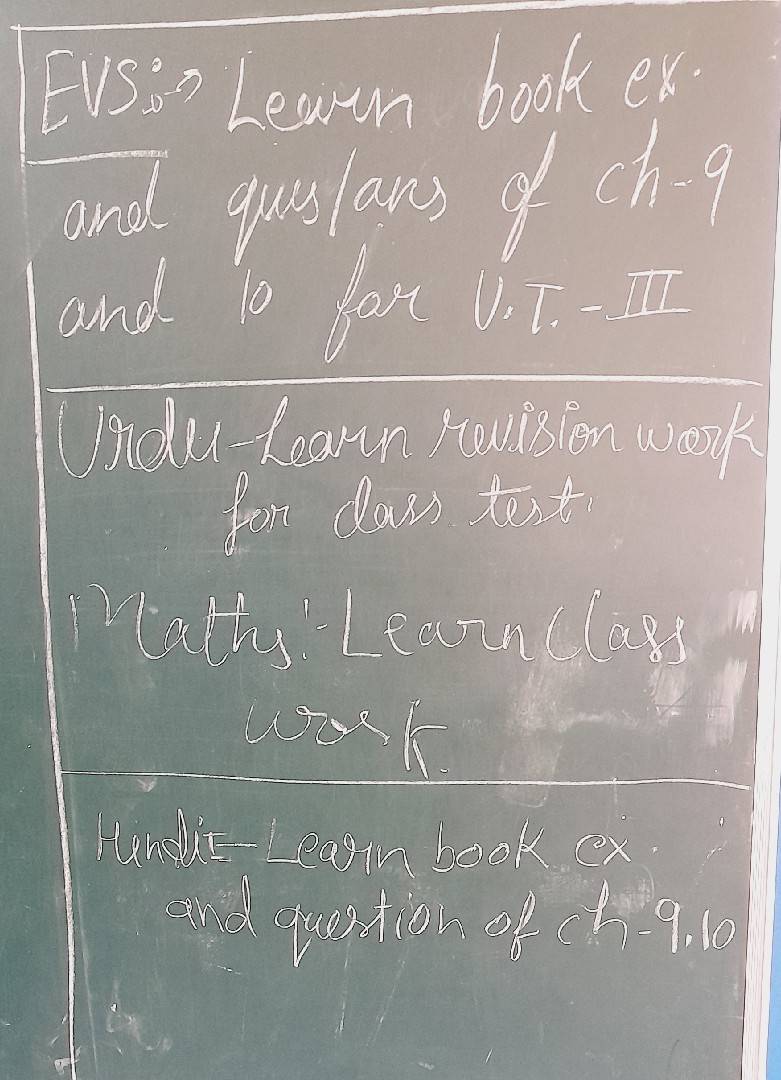 EVS:→ Learn book ex.
and ques/ans of ch-9
and 10 for U.T.-III
Urdu-Learn revision work
for class test.
Maths:-Learn Class
work.
Hindi-Learn book ex.
and question of ch-9,10